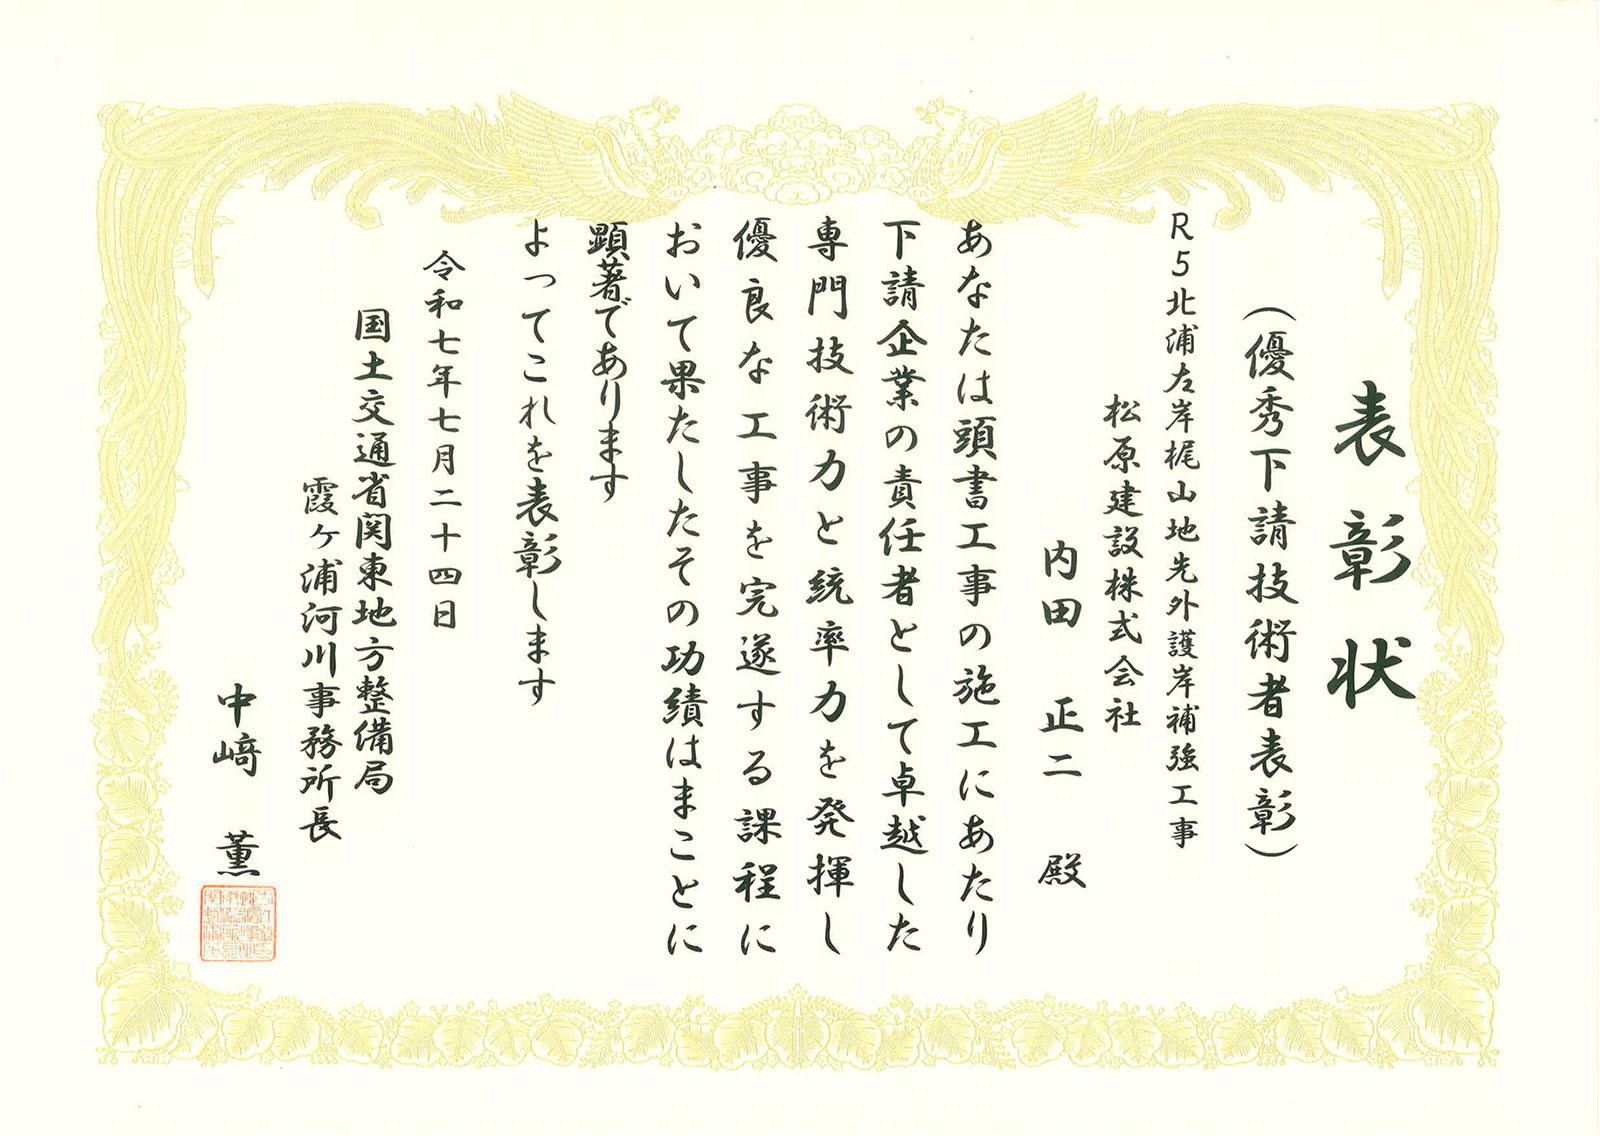 表彰状
（優秀下請技術者表彰）
R5北浦左岸梶山地先外護岸補強工事
松原建設株式会社
内田 正二 殿
あなたは頭書工事の施工にあたり
下請企業の責任者として卓越した
専門技術力と統率力を発揮し
優良な工事を完遂する課程に
おいて果たしたその功績はまことに
顕著であります
よってこれを表彰します
令和七年七月二十四日
国土交通省関東地方整備局
霞ヶ浦河川事務所長
中﨑 薫